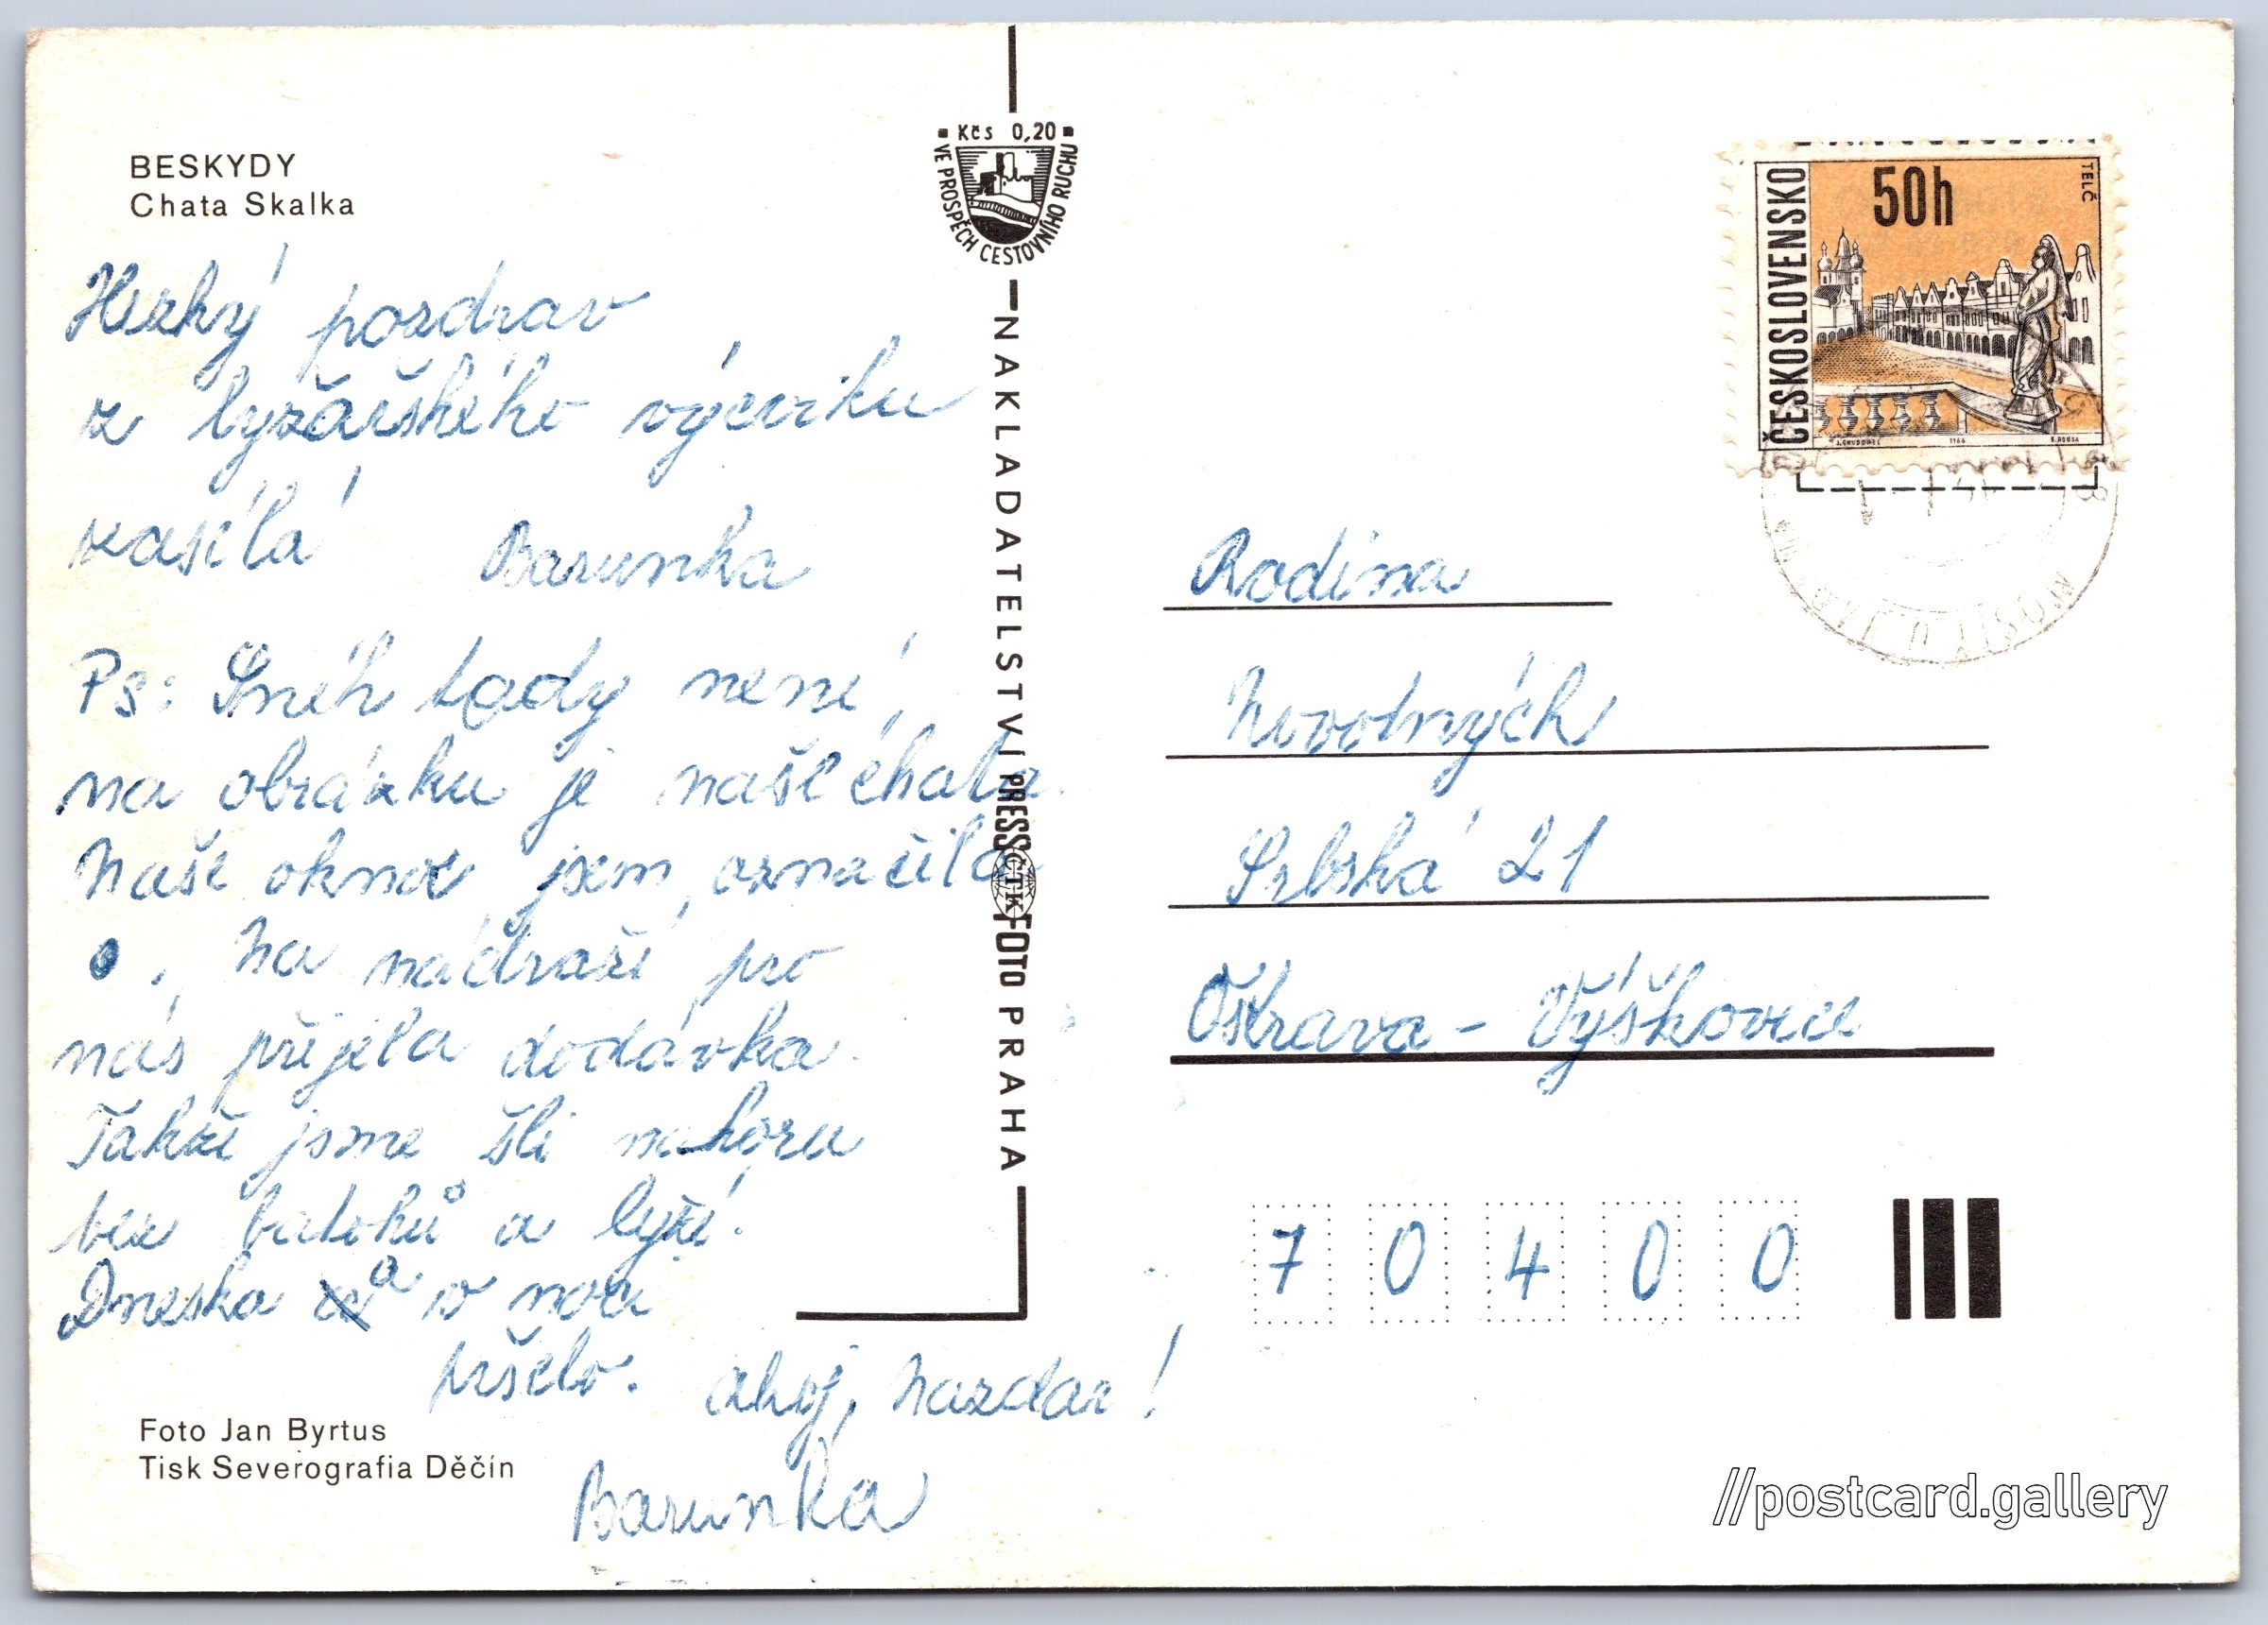 BESKYDY
Chata Skalka
Hezký pozdrav
z lyžařského výcviku
zasílá Barunka
Ps: Sníh tady není,
na obrázku je naše chata.
Naše okno jsem označila
. Na nádraží pro
nás přijela dodávka.
Takže jsme šli nahoru
bez batohů a lyží.
Dneska a v noci
pršelo. ahoj, Nazdar!
Barunka
Foto Jan Byrtus
Tisk Severografia Děčín
Kčs 0,20
VE PROSPĚCH CESTOVNÍHO RUCHU
NAKLADATELSTVÍ PRESSFOTO PRAHA
ČTK
ČESKOSLOVENSKO
50h
TELČ
J. CHUDOMEL 1966
MOSTY U JAB
Rodina
Novotných
Srbská 21
Ostrava - Výškovice
7 0 4 0 0
//postcard.gallery